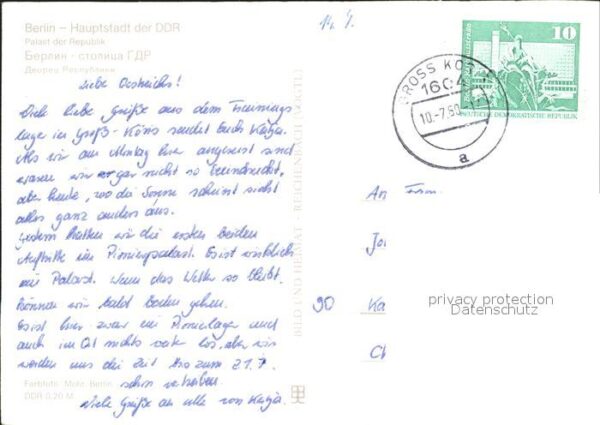 Berlin – Hauptstadt der DDR
Palast der Republik
Берлин - столица ГДР
Дворец Республики
14. 7.
10
DEUTSCHE DEMOKRATISCHE REPUBLIK
GROSS KÖ
1604
10.-7.80
a
Liebe Oestreichs!
Viele liebe Grüße aus dem Trainings
lager in Groß-Köris sendet Euch Katja.
Als wir am Montag hier angereist sind
waren wir gar nicht so beeindruckt,
aber heute, wo die Sonne scheint sieht
alles ganz anders aus.
Gestern hatten wir die ersten beiden
Auftritte im Pionierpalast. Es ist wirklich
ein Palast. Wenn das Wetter so bleibt,
können wir bald baden gehen.
Es ist hier zwar ein Pionierlager und
auch im Ort nichts weiter los, aber wir
werden uns die Zeit bis zum 21.7.
schon vertreiben.
Viele Grüße an alle von Katja.
BILD UND HEIMAT · REICHENBACH (VOGTL)
An Fam.
Jo
90 Ka
Ch
privacy protection
Datenschutz
Farbfoto: Mohr, Berlin
DDR 0,20 M